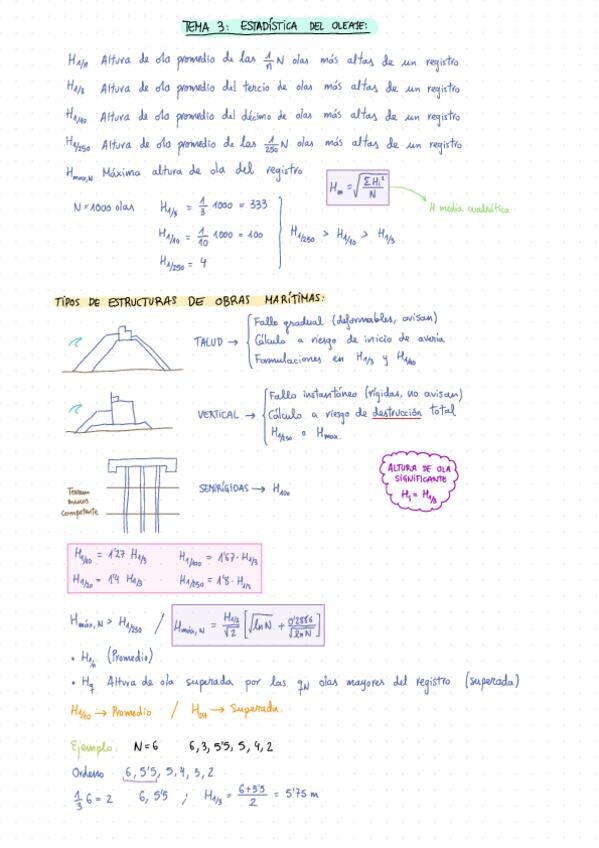 TEMA 3: ESTADÍSTICA DEL OLEAJE:
H1/n Altura de ola promedio de las 1/n N olas más altas de un registro
H1/3 Altura de ola promedio del tercio de olas más altas de un registro
H1/10 Altura de ola promedio del décimo de olas más altas de un registro
H1/250 Altura de ola promedio de las 1/250 N olas más altas de un registro
Hmax,N Máxima altura de ola del registro
Hm = √(ΣHi²/N)
H media cuadrática
N = 1000 olas H1/3 = 1/3 1000 = 333
H1/10 = 1/10 1000 = 100
H1/250 = 4
H1/250 > H1/10 > H1/3
TIPOS DE ESTRUCTURAS DE OBRAS MARÍTIMAS:
TALUD → Fallo gradual (deformables, avisan)
Cálculo a riesgo de inicio de avería
Formulaciones en H1/3 y H1/10
VERTICAL → Fallo instantáneo (rígidas, no avisan)
Cálculo a riesgo de destrucción total
H1/250 o Hmax.
Terreno
menos
competente
SEMIRÍGIDAS → H100
ALTURA DE OLA
SIGNIFICANTE
Hs = H1/3
H1/10 = 1'27 H1/3 H1/100 = 1'67·H1/3
H1/20 = 1'4 H1/3 H1/250 = 1'8·H1/3
Hmáx,N > H1/250 / Hmáx,N = H1/3/√2 [√lnN + 0'2886/√lnN]
• H1/n (Promedio)
• Hq Altura de ola superada por las qN olas mayores del registro (superada)
H1/10 → Promedio / → Superada.
Ejemplo: N=6 6, 3, 5'5, 5, 4, 2
Ordeno 6, 5'5, 5, 4, 3, 2
1/3 6 = 2 6, 5'5 ; H1/3 = 6+5'5/2 = 5'75 m